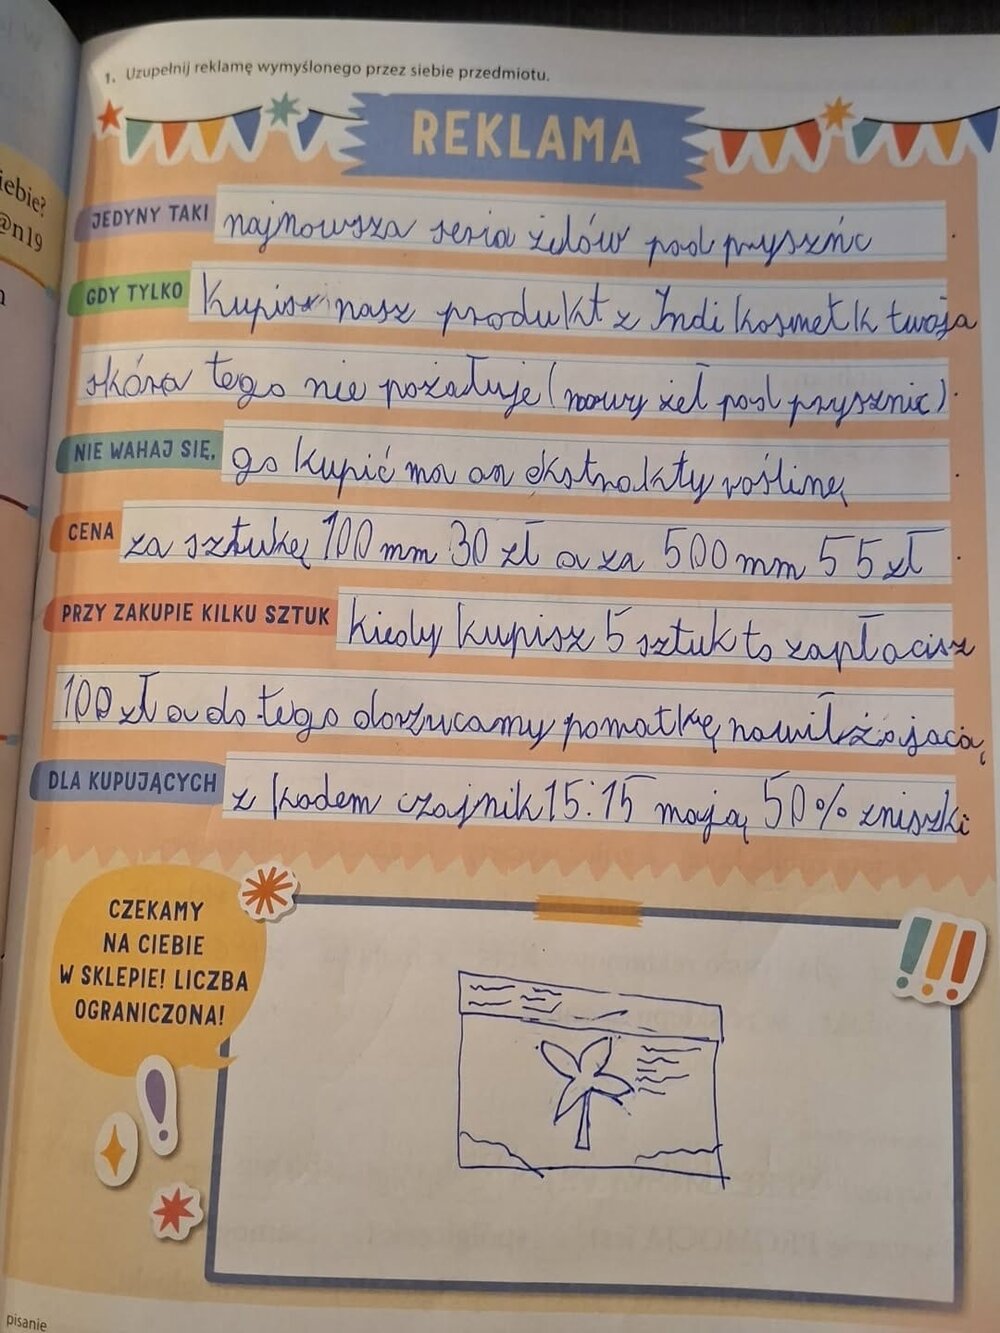 iebie?
@n19
1. Uzupełnij reklamę wymyślonego przez siebie przedmiotu.
REKLAMA
JEDYNY TAKI najnowsza seria żelów pod pryszńc.
GDY TYLKO kupisz nasz produkt z Indi kosmetk twoja
skóra tego nie pożałuje (nowy żel pod prysznic).
NIE WAHAJ SIĘ, go kupić ma on ekstrakty roślinę.
CENA za sztukę 100 mm 30 zł a za 500 mm 55 zł.
PRZY ZAKUPIE KILKU SZTUK kiedy kupisz 5 sztuk to zapłacisz
100 zł a do tego dorzucamy pomatkę nawilżającą
DLA KUPUJĄCYCH z kodem czajnik 15:15 mają 50% zniszki
CZEKAMY
NA CIEBIE
W SKLEPIE! LICZBA
OGRANICZONA!
pisanie